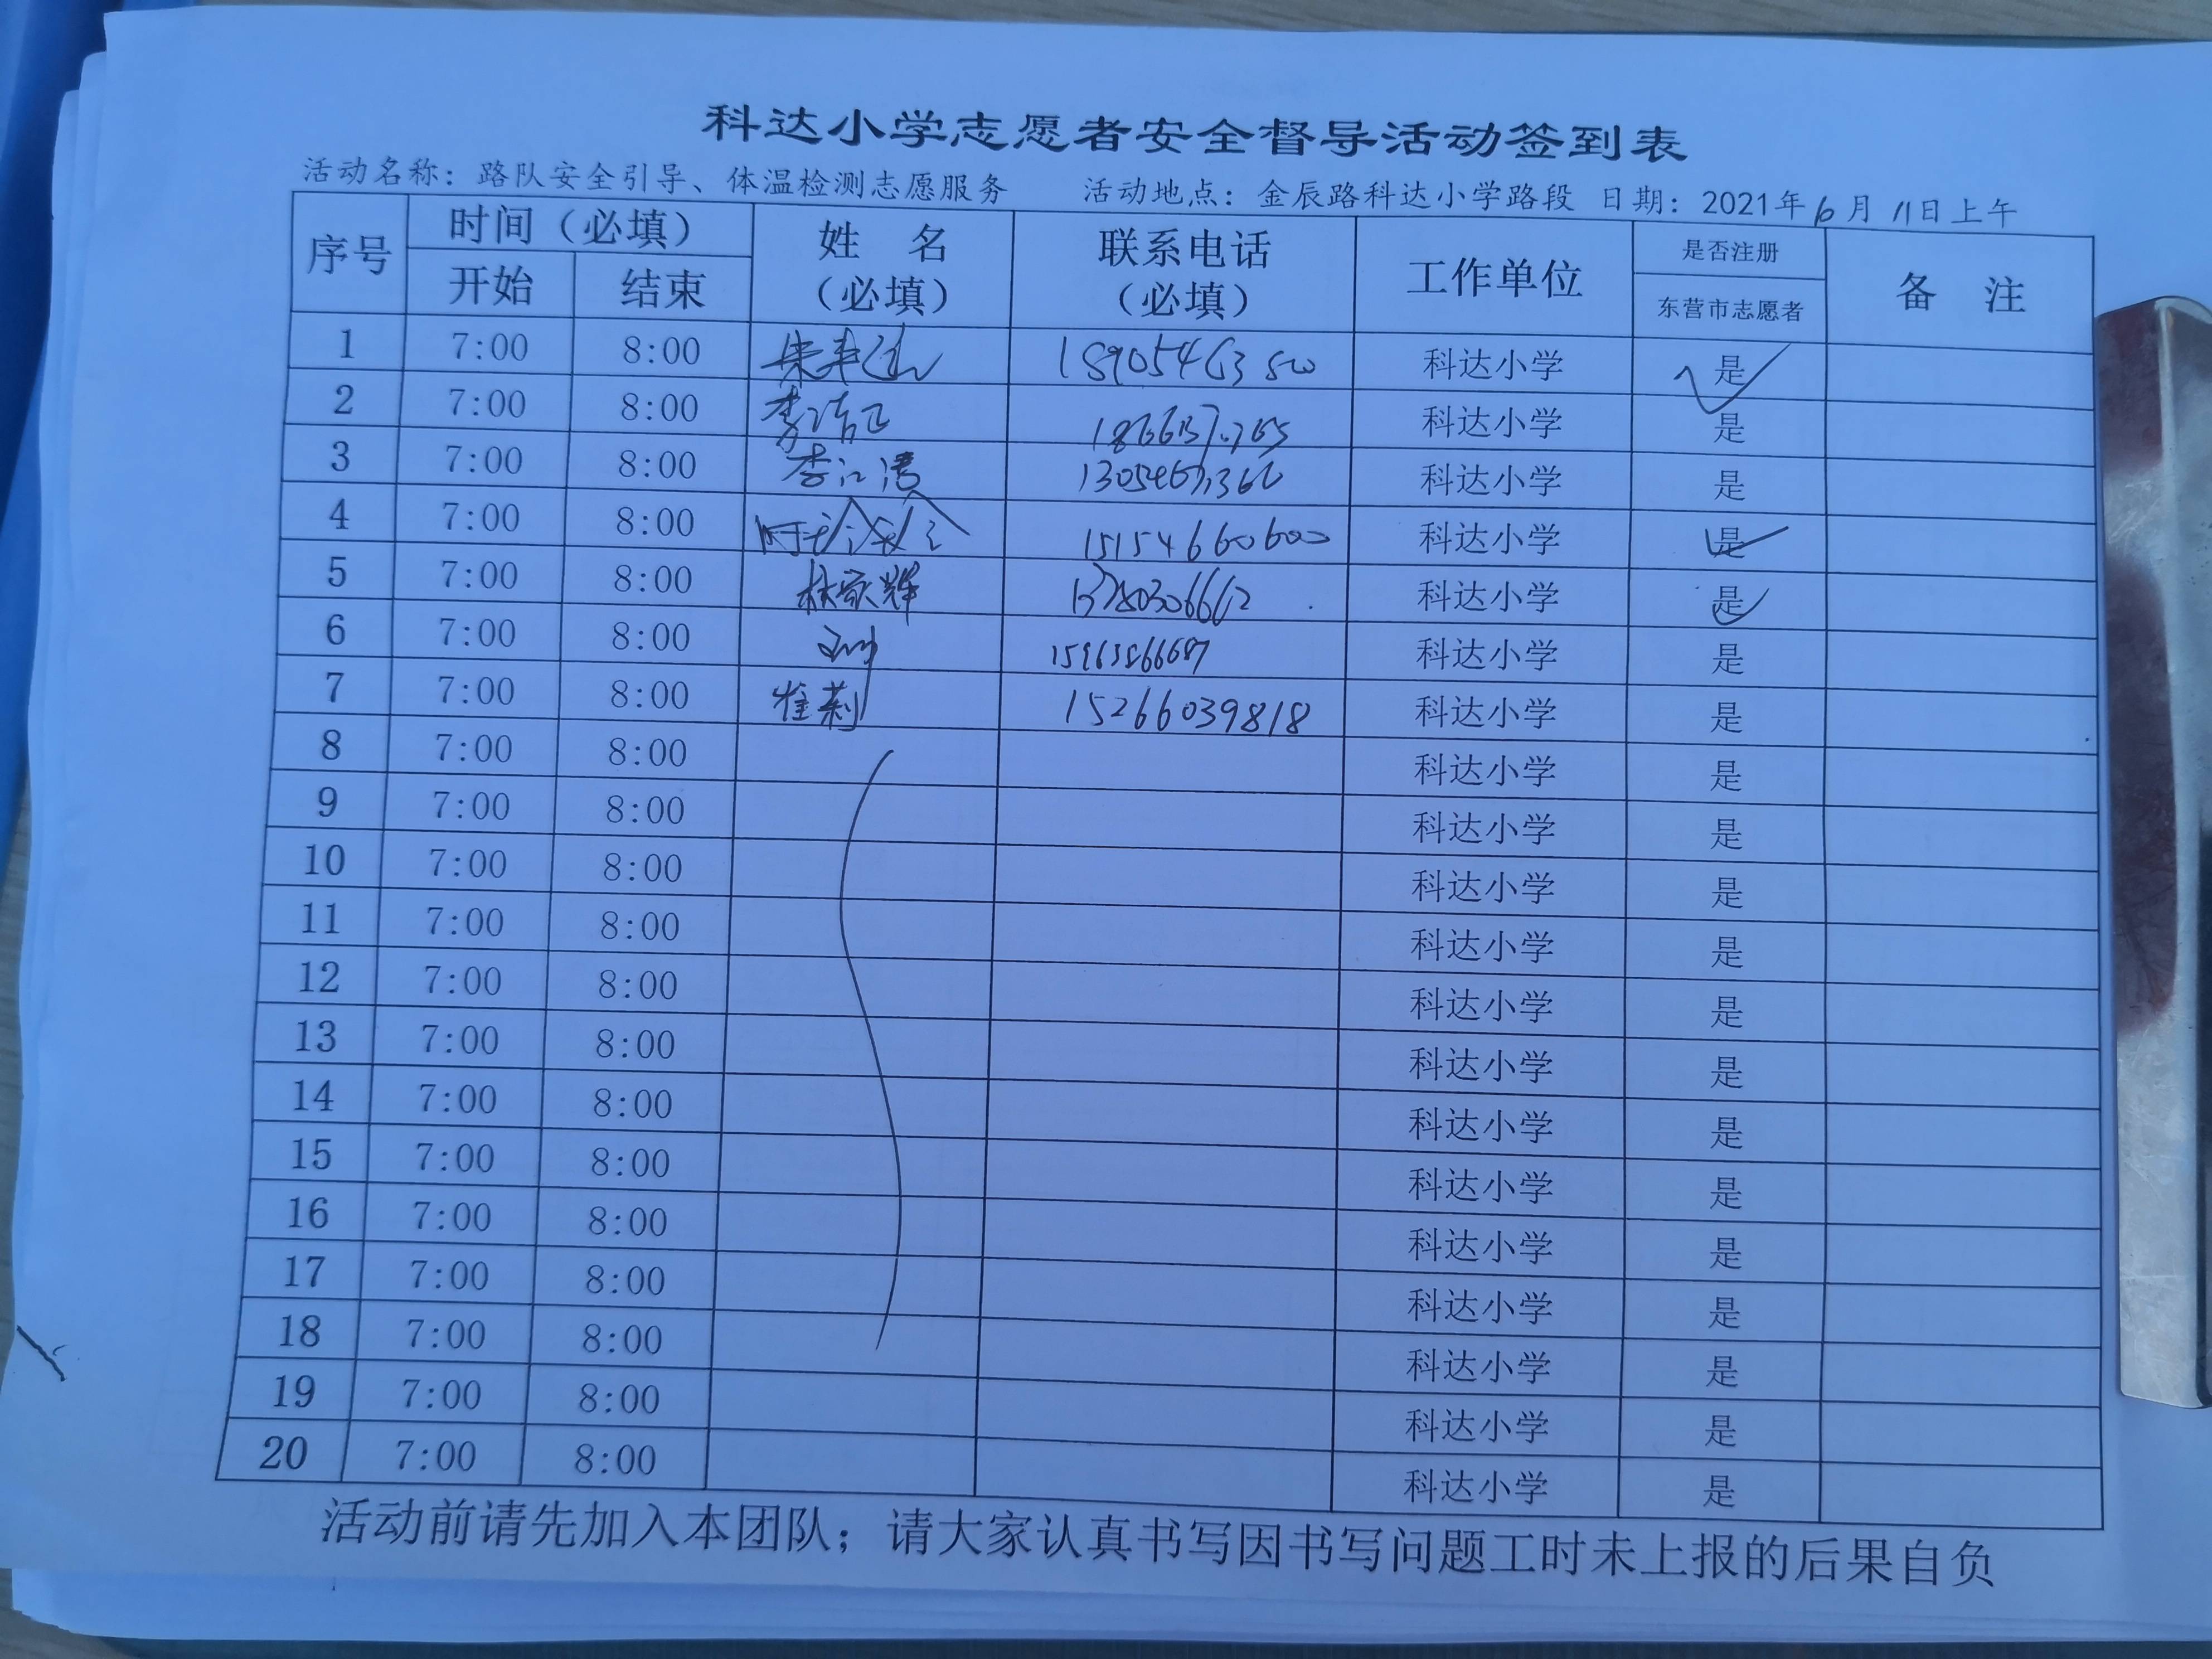 科达小学志愿者安全督导活动签到表
活动名称：路队安全引导、体温检测志愿服务 活动地点：金辰路科达小学路段 日期：2021年6月11日上午
序号 时间（必填） 姓 名（必填） 联系电话（必填） 工作单位 是否注册 备 注
开始 结束 东营市志愿者
1 7:00 8:00 科达小学 是
2 7:00 8:00 科达小学 是
3 7:00 8:00 李江涛 科达小学 是
4 7:00 8:00 15154660600 科达小学 是
5 7:00 8:00 林家辉 科达小学 是
6 7:00 8:00 科达小学 是
7 7:00 8:00 崔莉 15266039818 科达小学 是
8 7:00 8:00 科达小学 是
9 7:00 8:00 科达小学 是
10 7:00 8:00 科达小学 是
11 7:00 8:00 科达小学 是
12 7:00 8:00 科达小学 是
13 7:00 8:00 科达小学 是
14 7:00 8:00 科达小学 是
15 7:00 8:00 科达小学 是
16 7:00 8:00 科达小学 是
17 7:00 8:00 科达小学 是
18 7:00 8:00 科达小学 是
19 7:00 8:00 科达小学 是
20 7:00 8:00 科达小学 是
活动前请先加入本团队；请大家认真书写因书写问题工时未上报的后果自负